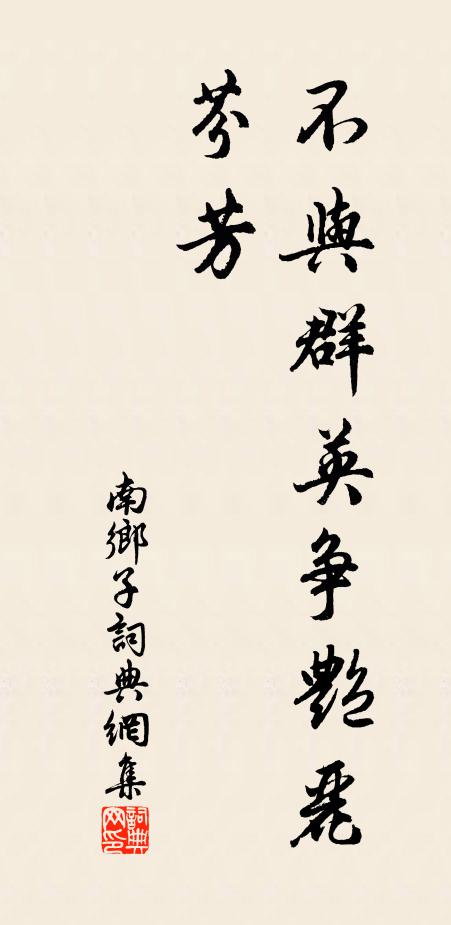 不與群英争艷麗
芬芳
南鄉子詞典網集
詞典
网印